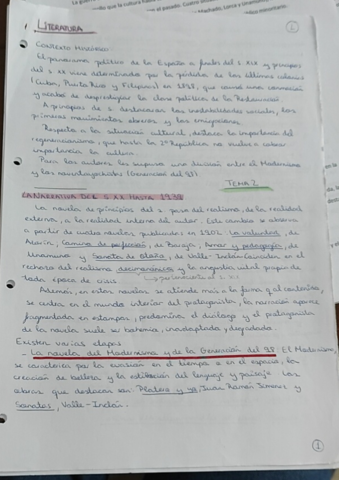 LITERATURA
Contexto histórico
El panorama político de la España a finales del s. XIX y principios
del s. XX viene determinado por la pérdida de las últimas colonias
(Cuba, Puerto Rico y Filipinas) en 1898, que causó una conmoción
y acabó de desprestigiar la clase política de la Restauración
A principios de s. destacaron las sociales, los
primeros movimientos obreros y las emigraciones.
Respecto a la situación cultural, destaca la importancia del
regeneracionismo, que hasta la 2ª República no vuelve a cobrar
importancia la cultura.
Para los autores les supuso una división entre el Modernismo
y los noventayochistas (Generación del 98).
TEMA 2
LA NARRATIVA DEL S XX HASTA 1939
La novela de principios del s. pasa del realismo, de la realidad
externa, a la realidad interna del autor. Este cambio se observa
a partir de cuatro novelas publicadas en 1902: La voluntad, de
Azorín, Camino de perfección, de Baroja, Amor y pedagogía, de
Unamuno y Sonata de Otoño, de Valle-Inclán. Coinciden en el
rechazo del realismo decimonónico y la angustia vital propia de
toda época de crisis
Además, en estas novelas se atiende más a la forma q al contenido,
se centra en el mundo interior del protagonista, la narración aparece
fragmentada en estampas, predomina el diálogo y el protagonista
de la novela suele ser bohemio, inadaptado y degradado.
Existen varias etapas
- La novela del Modernismo y de la Generación del 98: El Modernismo,
se caracteriza por la evasión en el tiempo o en el espacio, la
creación de belleza y la estilización del lenguaje y paisaje. Las
obras que destacan son: Platero y yo, Juan Ramón Jiménez y
Sonatas, Valle-Inclán.
1